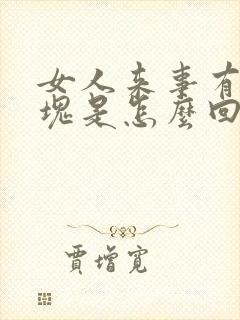 女人来事有
塊是怎麼回
賈增寬